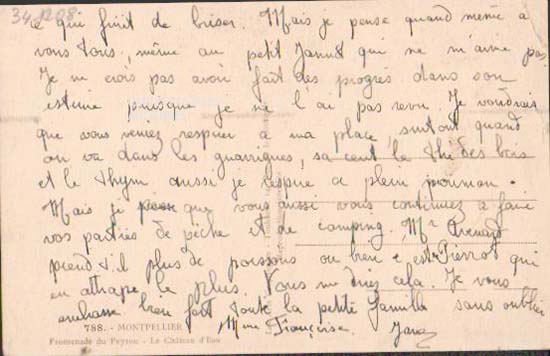 34 1208
ce qui finit de briser. Mais je pense quand même à
vous tous, même au petit qui ne m'aime pas
Je ne crois pas avoir fait des progrès dans son
estime puisque je ne l'ai pas revu. Je voudrais
que vous veniez respirer à ma place, surtout quand
on va dans les guarrigues, sa cent le Thé des bois
et le Thym aussi je respire a plein poumon.
Mais je pense que vous aussi vous continuez à faire
vos parties de pêche et de camping. Mr
prend-il plus de poissons ou bien c'est Pierrot qui
en attrape le plus. Vous me direz cela. Je vous
embrasse bien fort toute la petite famille sans oublier
Mme Françoise.
788. - MONTPELLIER
Promenade du Peyrou - Le Château d'Eau